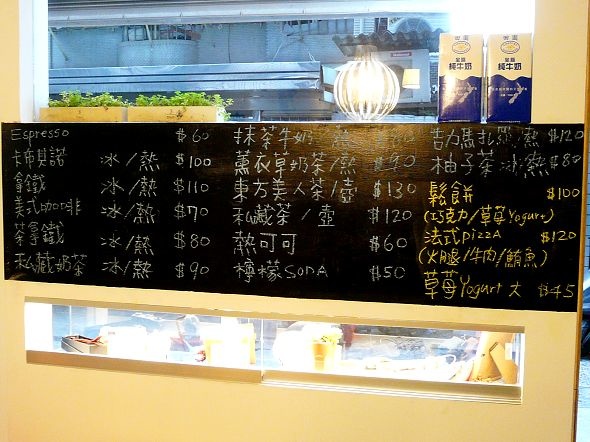 Espresso $60
卡布其諾 冰/熱 $100
拿鐵 冰/熱 $110
美式咖啡 冰/熱 $70
茶拿鐵 冰/熱 $80
私藏奶茶 冰/熱 $90
抹茶牛奶 熱
薰衣草奶茶/熱 $90
東方美人茶/壺 $130
私藏茶/壺 $120
熱可可 $60
檸檬SODA $50
吉力馬扎羅 熱 $120
柚子茶 冰/熱 $80
鬆餅 $100
(巧克力/草莓Yogurt)
法式pizzA $120
(火腿/牛肉/鮪魚)
草莓Yogurt 大 $45
純牛奶
純牛奶